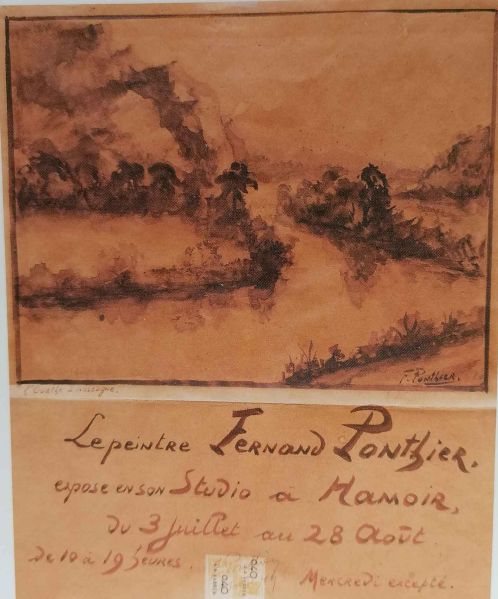 F. Ponthier.
Le peintre Fernand Ponthier.
expose en son Studio à Hamoir,
du 3 Juillet au 28 Août.
de 10 à 19 heures.
Mercredi excepté.